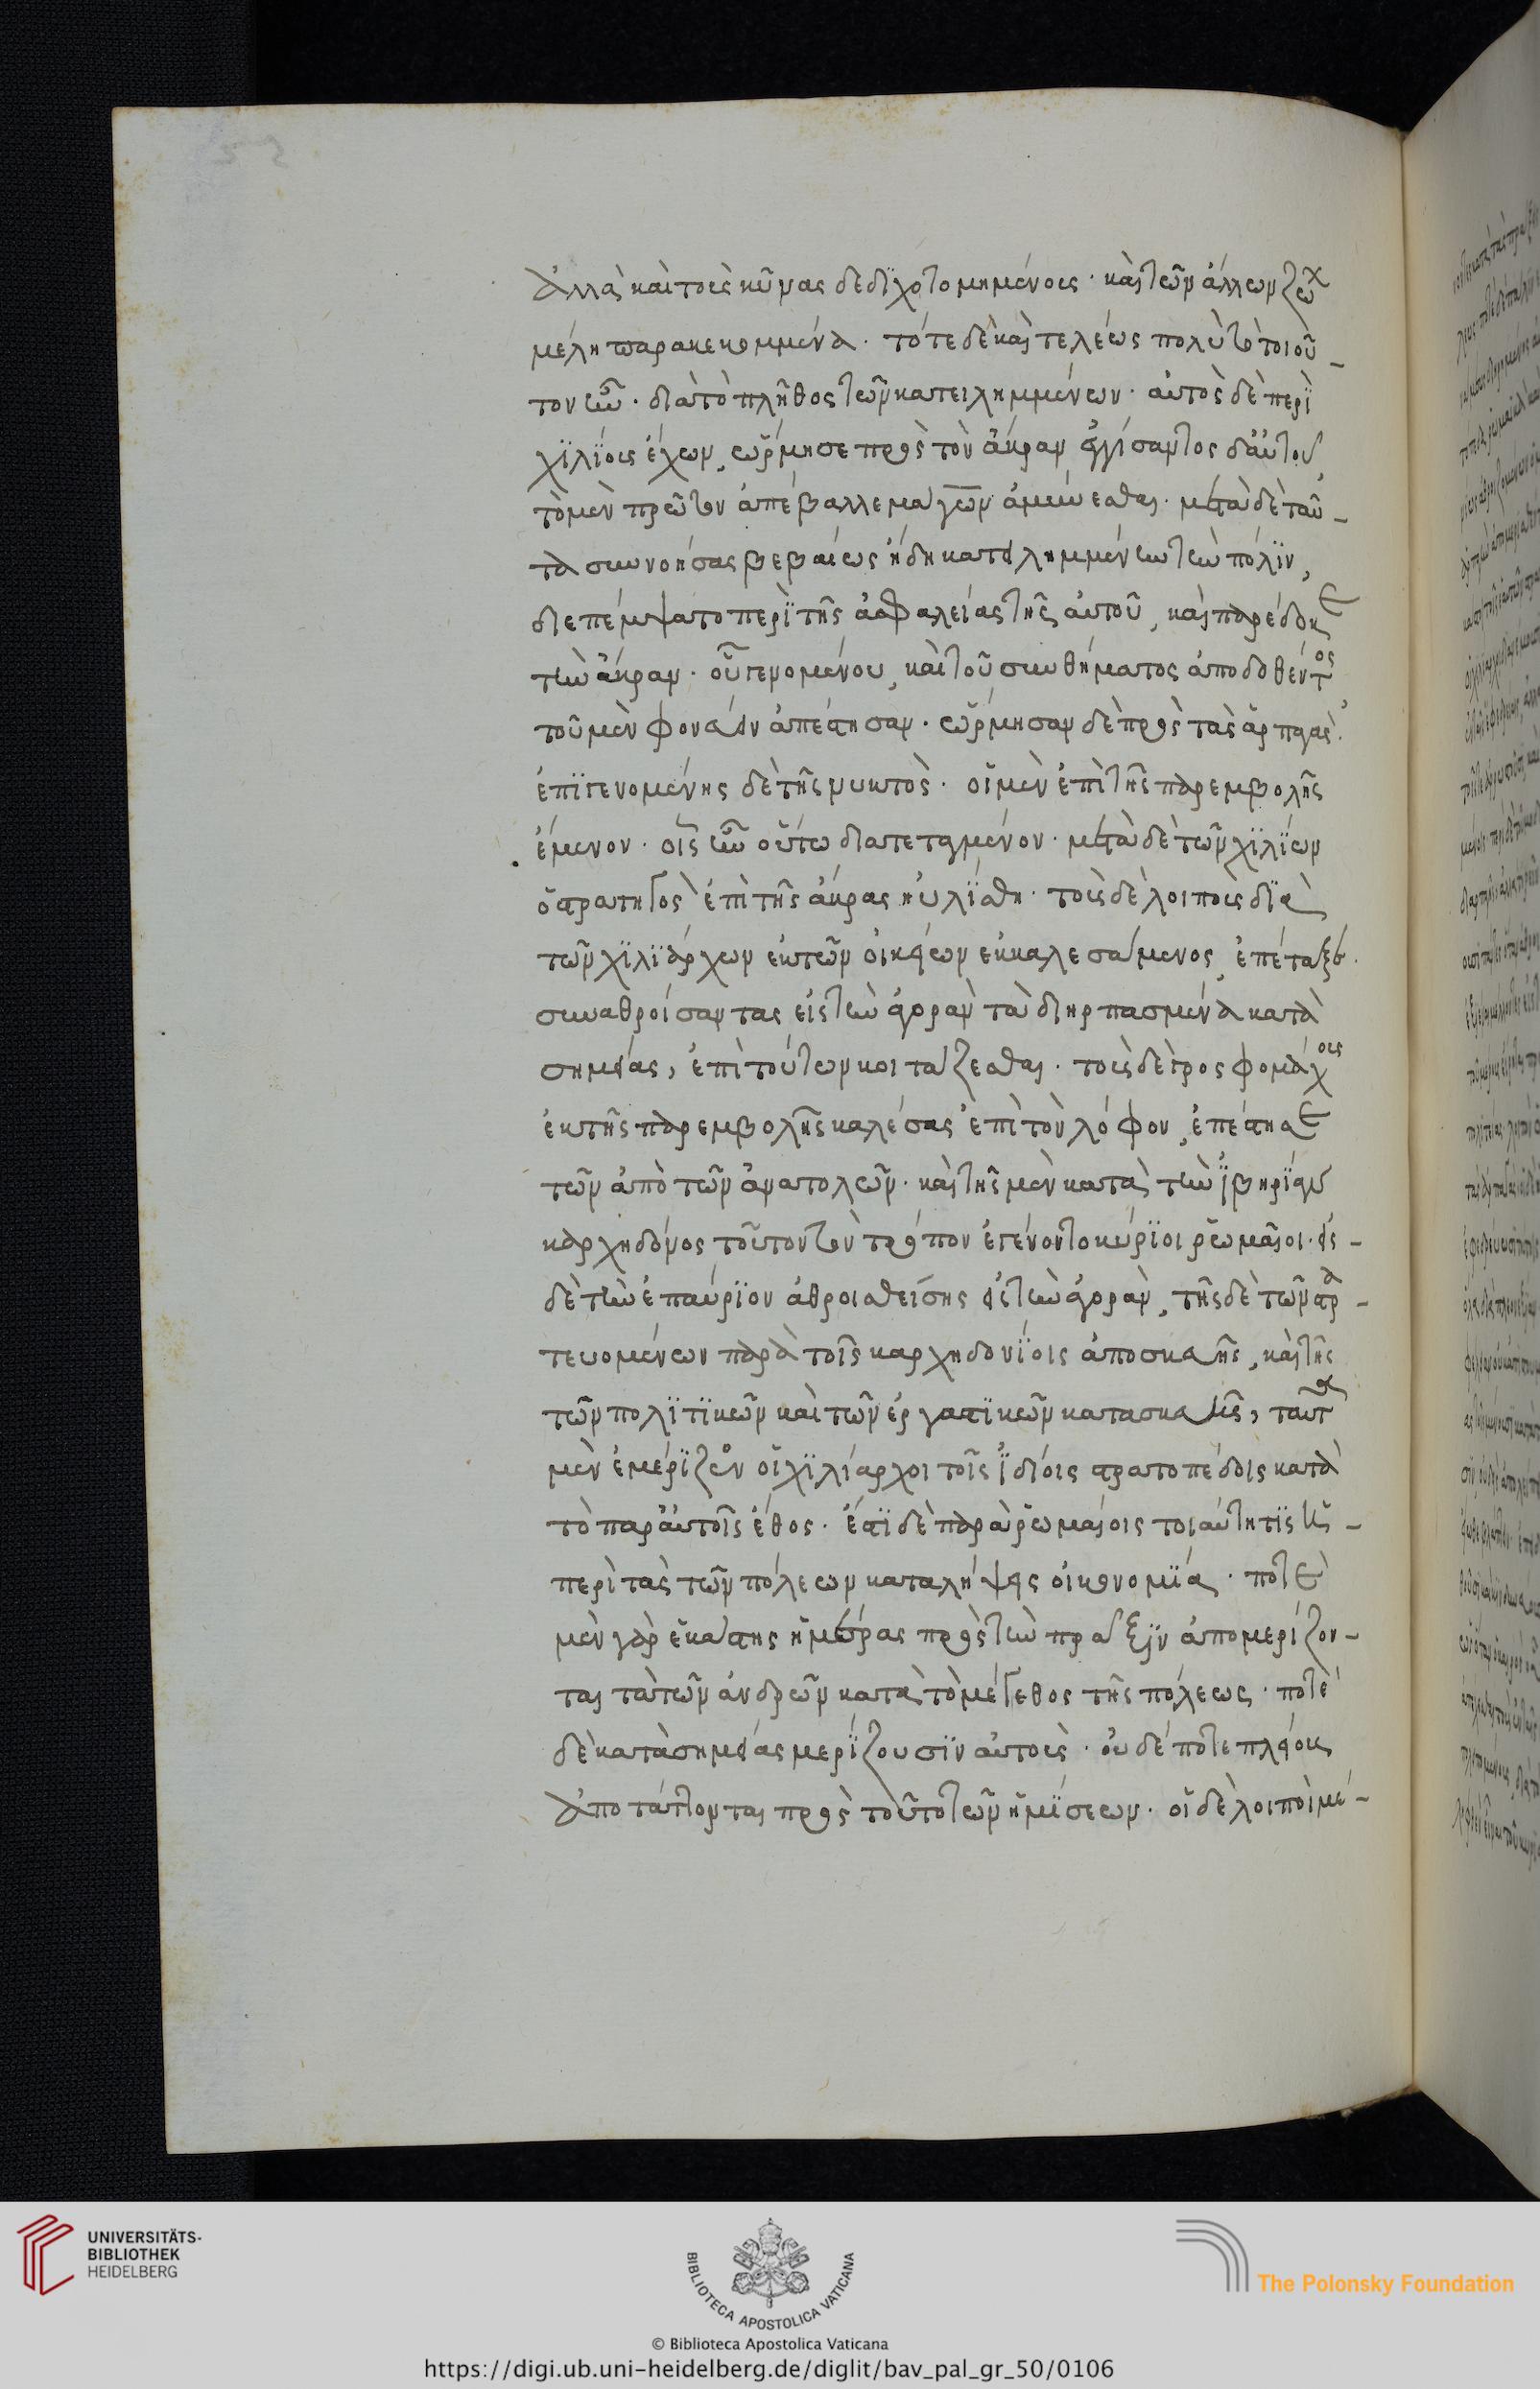 ἀλλὰ καὶ τοὺς κύνας δεδιχοτομημένους · καὶ τῶν ἄλλων ζώων
μέλη παρακεκομμένα · τότε δὲ καὶ τελέως πολὺ τὸ τοιοῦ-
τον ἦν · διὰ τὸ πλῆθος τῶν κατειλημμένων · αὐτὸς δὲ περὶ
χιλίους ἔχων, ὥρμησε πρὸς τὸν ἄκραν ἐγγίσαντος δ' αὐτοῦ
τὸ μὲν πρῶτον ἀπέβαλλε μάγων ἀμύνεσθαι · μετὰ δὲ ταῦ-
τα συννοήσας βεβαίως ἤδη κατειλημμένην τὴν πόλιν,
διεπέμψατο περὶ τῆς ἀσφαλείας τῆς αὐτοῦ, καὶ παρέδωκε
τὴν ἄκραν · οὗ γενομένου, καὶ τοῦ συνθήματος ἀποδοθέντος
τοῦ μὲν φονεύειν ἀπέστησαν · ὥρμησαν δὲ πρὸς τὰς ἁρπαγάς ·
ἐπιγενομένης δὲ τῆς νυκτὸς · οἱ μὲν ἐπὶ τῆς παρεμβολῆς
ἔμενον · οἷς ἦν οὕτω διατεταγμένον · μετὰ δὲ τῶν χιλίων
ὁ στρατηγὸς ἐπὶ τῆς ἄκρας ηὐλίσθη · τοὺς δὲ λοιποὺς διὰ
τῶν χιλιάρχων ἐκ τῶν οἰκιῶν ἐκκαλεσάμενος, ἐπέταξε ·
συναθροίσαντας εἰς τὴν ἀγορὰν τὰ διηρπασμένα κατὰ
σημείας, ἐπὶ τούτων κοιτάζεσθαι · τοὺς δὲ γροσφομάχους
ἐκ τῆς παρεμβολῆς καλέσας ἐπὶ τὸν λόφον, ἐπέστησε
τῶν ἀπὸ τῶν ἀνατολῶν · καὶ τῆς μὲν κατὰ τὴν ἰβηρίαν
καρχηδόνος τοῦτον τὸν τρόπον ἐγένοντο κύριοι ῥωμαῖοι · εἰς
δὲ τὴν ἐπαύριον ἀθροισθείσης εἰς τὴν ἀγορὰν, τῆς δὲ τῶν στρα-
τευομένων παρὰ τοῖς καρχηδονίοις ἀποσκευῆς, καὶ τῆς
τῶν πολιτικῶν καὶ τῶν ἐργαστικῶν κατασκευῆς, ταῦτα
μὲν ἐμέριζον οἱ χιλίαρχοι τοῖς ἰδίοις στρατοπέδοις κατὰ
τὸ παρ' αὐτοῖς ἔθος · ἔστι δὲ παρὰ ῥωμαίοις τοιαύτη τις ἡ
περὶ τὰς τῶν πόλεων καταλήψεις οἰκονομία · ποτὲ
μὲν γὰρ ἑκάστης ἡμέρας πρὸς τὴν πρᾶξιν ἀπομερίζον-
ται τὰ τῶν ἀνδρῶν κατὰ τὸ μέγεθος τῆς πόλεως · ποτὲ
δὲ κατὰ σημείας μερίζουσιν αὐτοὺς · οὐδέποτε πλείους
ἀποτάττονται πρὸς τοῦτο τῶν ἡμίσεων · οἱ δὲ λοιποὶ μέ-
UNIVERSITÄTS-
BIBLIOTHEK
HEIDELBERG
BIBLIOTECA APOSTOLICA VATICANA
The Polonsky Foundation
© Biblioteca Apostolica Vaticana
https://digi.ub.uni-heidelberg.de/diglit/bav_pal_gr_50/0106